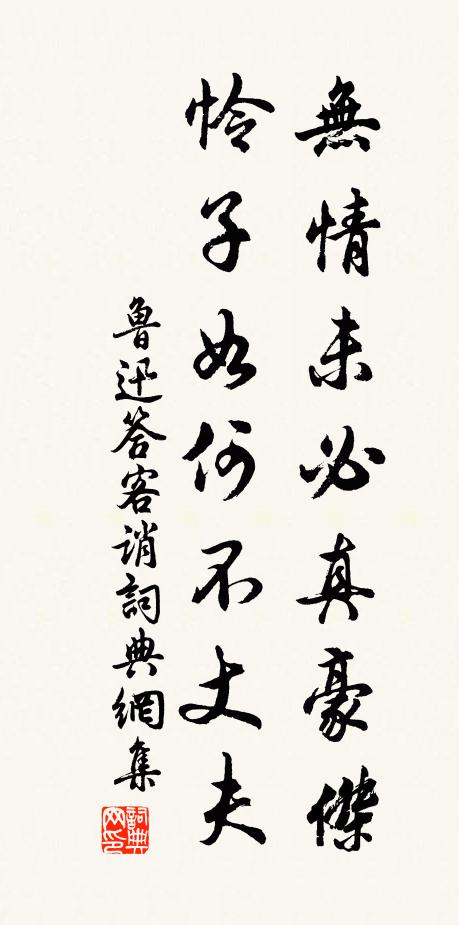 無情未必真豪傑
怜子如何不丈夫
魯迅答客誚詞典網集
詞典
网印